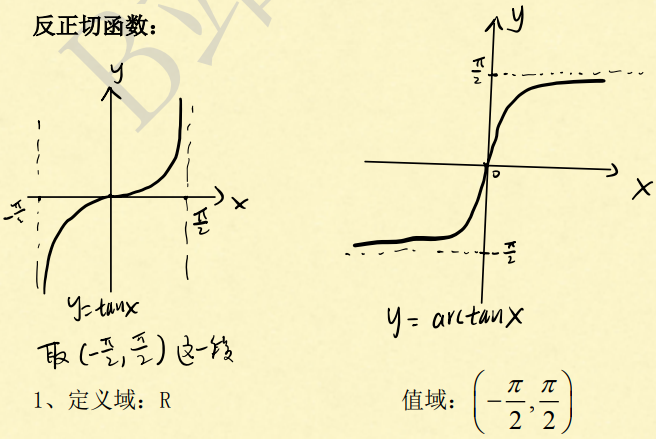 反正切函数：
y
x
-π/2
π/2
y=tanx
取(-π/2, π/2)这一段
y
π/2
0
x
π/2
y = arctanx
1、定义域：R
值域：(-π/2, π/2)